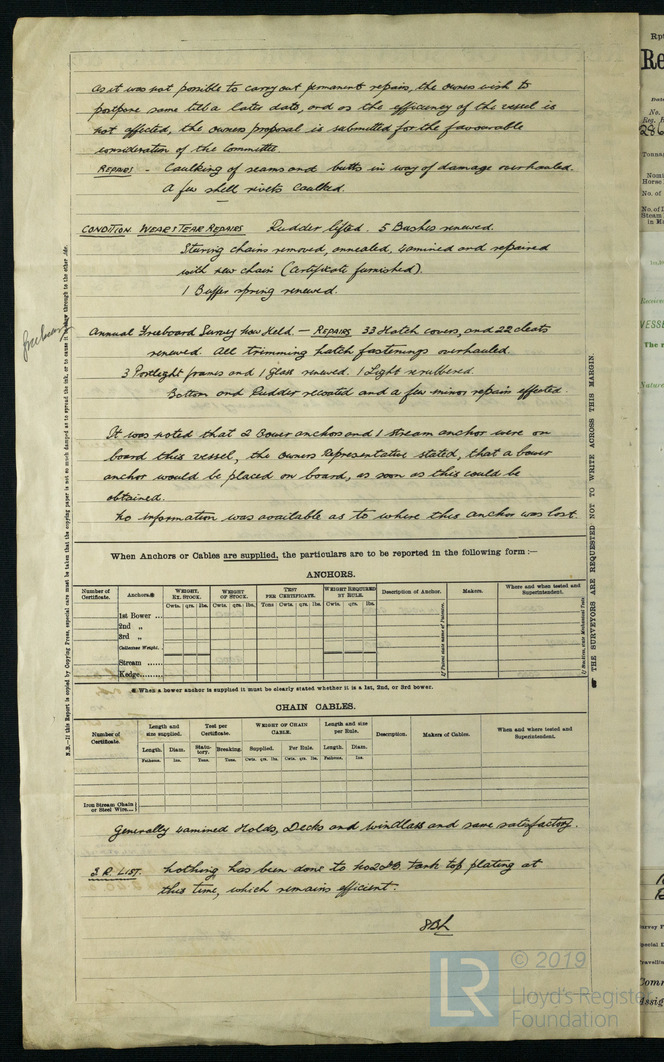 As it was not possible to carry out permanent repairs, the owners wish to
postpone same till a later date, and as the efficiency of the vessel is
not affected, the owners proposal is submitted for the favourable
consideration of the Committee
REPAIRS - Caulking of seams and butts in way of damage overhauled.
A few shell rivets caulked.
CONDITION WEAR & TEAR REPAIRS Rudder lifted. 5 Bushes renewed.
Steering chains removed, annealed, examined and repaired
with new chain (Certificate furnished).
1 Buffer spring renewed.
Annual Freeboard Survey now Held — REPAIRS 33 Hatch covers, and 22 cleats
renewed. All trimming hatch fastenings overhauled.
3 Portlight frames and 1 Glass renewed. 1 Light rerubbered.
Bottom and Rudder recoated and a few minor repairs effected
It was noted that 2 Bower anchors and 1 stream anchor were on
board this vessel, the owners Representative stated, that a bower
anchor would be placed on board, as soon as this could be
obtained.
No information was available as to where this anchor was lost.
When Anchors or Cables are supplied, the particulars are to be reported in the following form :—
ANCHORS.
Number of Certificate. Anchors WEIGHT. EX. STOCK. WEIGHT OF STOCK. TEST PER CERTIFICATE. WEIGHT REQUIRED BY RULE. Description of Anchor. Makers. Where and when tested and Superintendent.
Cwts. qrs. lbs. Cwts. qrs. lbs. Tons Cwts. qrs. lbs. Cwts. qrs. lbs.
1st Bower ...
2nd „
3rd „
Collective Weight.
Stream ......
Kedge.......
When a bower anchor is supplied it must be clearly stated whether it is a 1st, 2nd, or 3rd bower.
CHAIN CABLES.
Number of Certificate. Length and size supplied. Test per Certificate. WEIGHT OF CHAIN CABLE. Length and size per Rule. Description. Makers of Cables. When and where tested and Superintendent.
Length. Diam. Statutory. Breaking. Supplied. Per Rule. Length. Diam.
Fathoms. Ins. Tons. Tons. Cwts. qrs. lbs. Cwts. qrs. lbs. Fathoms. Ins.
Iron Stream Chain or Steel Wire....
Generally examined Holds, Decks and windlass and same satisfactory.
S.R. LIST. Nothing has been done to No2 DB. Tank top plating at
this time, which remains efficient.
THE SURVEYORS ARE REQUESTED NOT TO WRITE ACROSS THIS MARGIN.
LR
© 2019
Lloyd's Register
Foundation